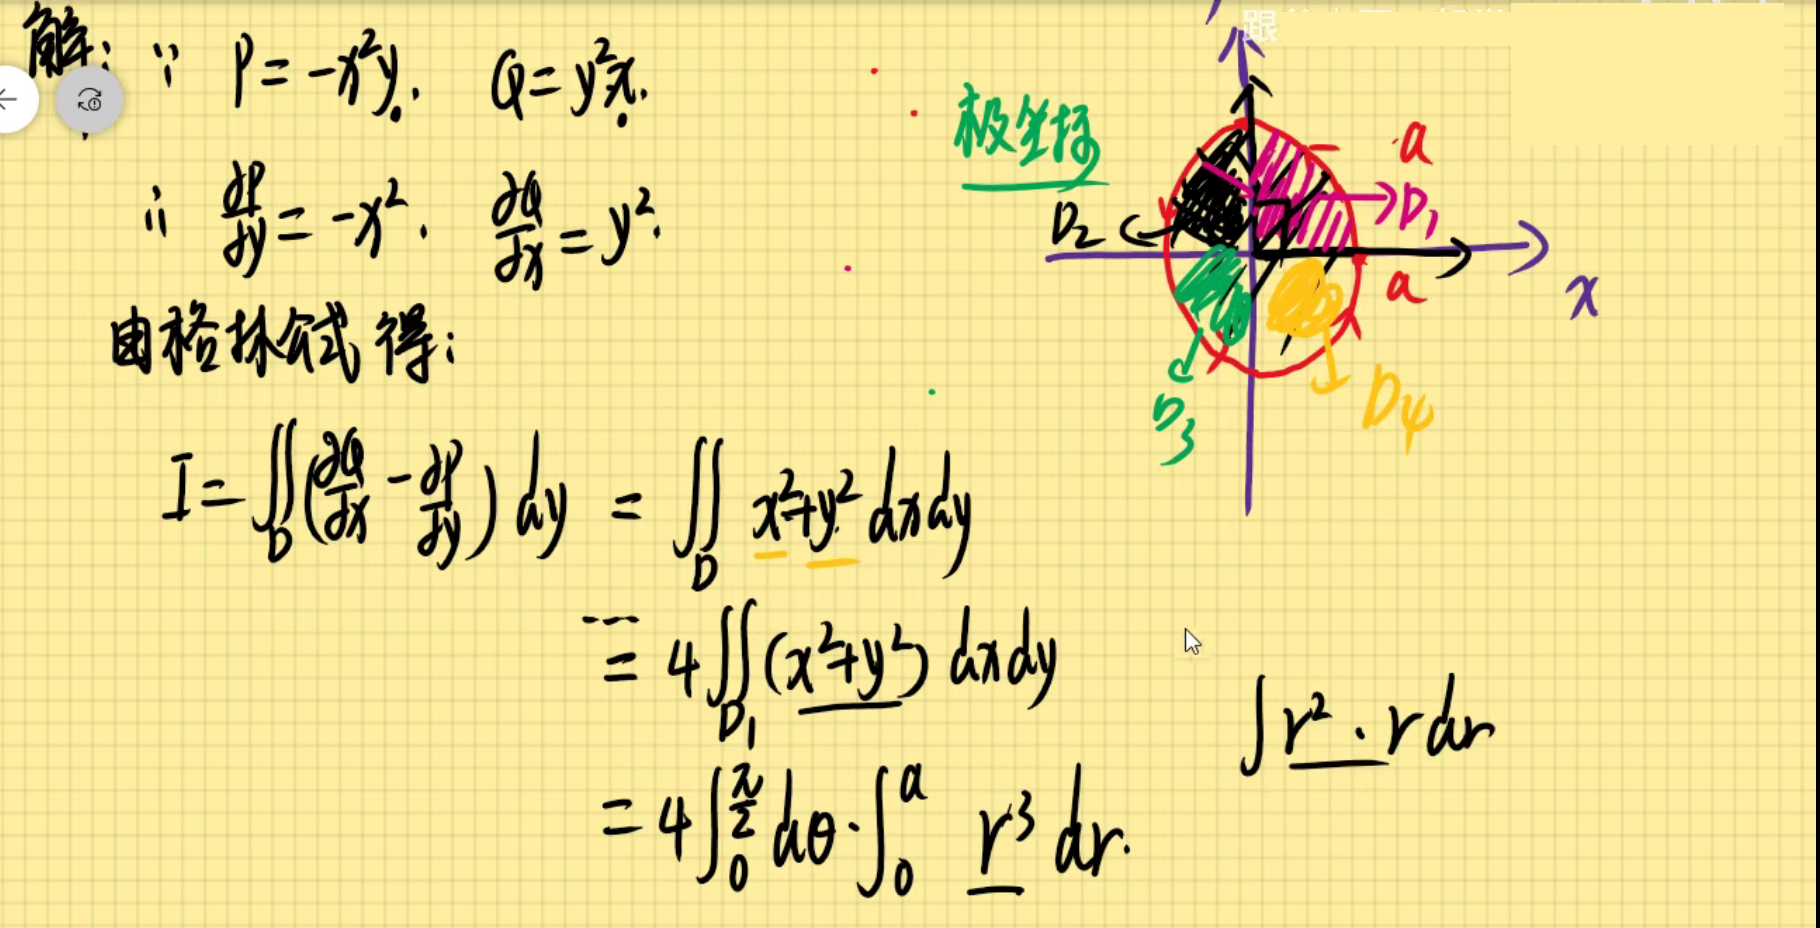 跟
解: ∵ P = -x²y. Q = y²x.
∴ ∂P/∂y = -x². ∂Q/∂x = y².
由格林公式得:
I = ∬_D (∂Q/∂x - ∂P/∂y) dy = ∬_D x²+y² dxdy
= 4∬_{D₁} (x²+y²) dxdy
= 4∫_0^{π/2} dθ·∫_0^a r³ dr.
∫ r²·r dr
极坐标
a
D₁
D₂
a
x
D₃
D₄